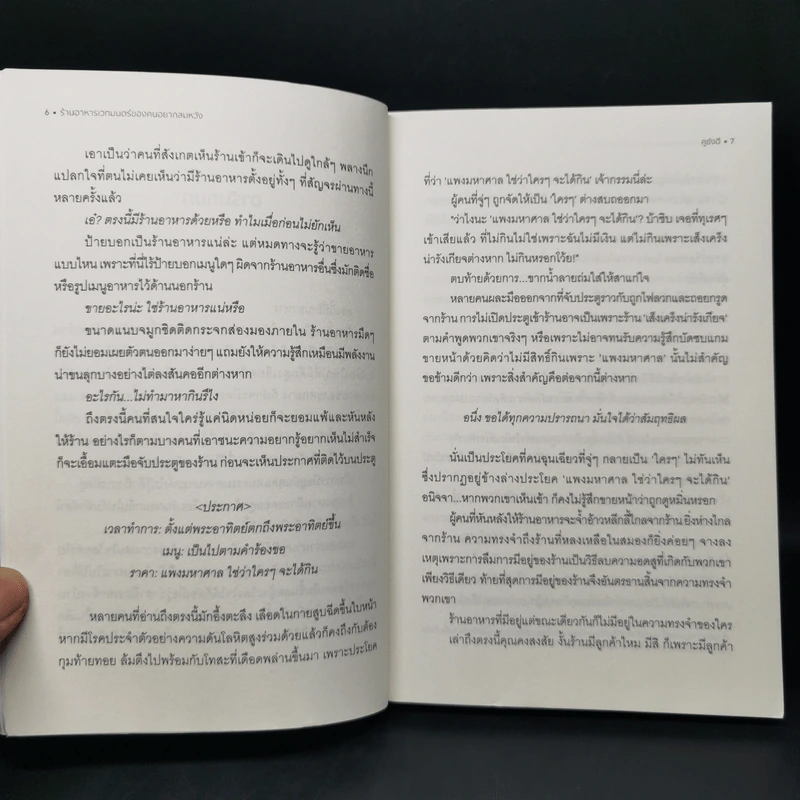 6 • ร้านอาหารเวทมนตร์ของคนอยากสมหวัง
เอาเป็นว่าคนที่สังเกตเห็นร้านเข้าก็จะเดินไปดูใกล้ๆ พลางนึก
แปลกใจที่ตนไม่เคยเห็นว่ามีร้านอาหารตั้งอยู่ทั้งๆ ที่สัญจรผ่านทางนี้
หลายครั้งแล้ว
เอ๋? ตรงนี้มีร้านอาหารด้วยหรือ ทำไมเมื่อก่อนไม่ยักเห็น
ป้ายบอกเป็นร้านอาหารแน่ล่ะ แต่หมดทางจะรู้ว่าขายอาหาร
แบบไหน เพราะที่นี่ไร้ป้ายบอกเมนูใดๆ ผิดจากร้านอาหารอื่นซึ่งมักติดชื่อ
หรือรูปเมนูอาหารไว้ด้านนอกร้าน
ขายอะไรน่ะ ใช่ร้านอาหารแน่หรือ
ขนาดแนบจมูกชิดติดกระจกส่องมองภายใน ร้านอาหารมืดๆ
ก็ยังไม่ยอมเผยตัวตนออกมาง่ายๆ แถมยังให้ความรู้สึกเหมือนมีพลังงาน
น่าขนลุกบางอย่างไต่ลงสันคออีกต่างหาก
อะไรกัน...ไม่ทำมาหากินรึไง
ถึงตรงนี้คนที่สนใจใคร่รู้แค่นิดหน่อยก็จะยอมแพ้และหันหลัง
ให้ร้าน อย่างไรก็ตามบางคนที่เอาชนะความอยากรู้อยากเห็นไม่สำเร็จ
ก็จะเอื้อมแตะมือจับประตูของร้าน ก่อนจะเห็นประกาศที่ติดไว้บนประตู
<ประกาศ>
เวลาทำการ: ตั้งแต่พระอาทิตย์ตกถึงพระอาทิตย์ขึ้น
เมนู: เป็นไปตามคำร้องขอ
ราคา: แพงมหาศาล ใช่ว่าใครๆ จะได้กิน
หลายคนที่อ่านถึงตรงนี้มักอึ้งตะลึง เลือดในกายสูบฉีดขึ้นใบหน้า
หากมีโรคประจำตัวอย่างความดันโลหิตสูงร่วมด้วยแล้วก็คงถึงกับต้อง
กุมท้ายทอย ล้มตึงไปพร้อมกับโทสะที่เดือดพล่านขึ้นมา เพราะประโยค
คูซังฮี • 7
ที่ว่า 'แพงมหาศาล ใช่ว่าใครๆ จะได้กิน' เจ้ากรรมนี่ล่ะ
ผู้คนที่จู่ๆ ถูกจัดให้เป็น 'ใครๆ' ต่างสบถออกมา
"ว่าไงนะ 'แพงมหาศาล ใช่ว่าใครๆ จะได้กิน'? บ้าชิบ เจอที่ทุเรศๆ
เข้าเสียแล้ว ที่ไม่กินไม่ใช่เพราะฉันไม่มีเงิน แต่ไม่กินเพราะเส็งเคร็ง
น่ารังเกียจต่างหาก ไม่กินหรอกโว้ย!"
ตบท้ายด้วยการ...ขากน้ำลายถ่มใส่ให้สาแก่ใจ
หลายคนผละมือออกจากที่จับประตูราวกับถูกไฟลวกและถอยกรูด
จากร้าน การไม่เปิดประตูเข้าร้านอาจเป็นเพราะร้าน 'เส็งเคร็งน่ารังเกียจ'
ตามคำพูดพวกเขาจริงๆ หรือเพราะไม่อาจทนรับความรู้สึกบัดซบแกม
ขายหน้าด้วยคิดว่าไม่มีสิทธิ์กินเพราะ 'แพงมหาศาล' นั้นไม่สำคัญ
ขอข้ามดีกว่า เพราะสิ่งสำคัญคือต่อจากนี้ต่างหาก
อนึ่ง ขอได้ทุกความปรารถนา มั่นใจได้ว่าสัมฤทธิผล
นั่นเป็นประโยคที่คนฉุนเฉียวที่จู่ๆ กลายเป็น 'ใครๆ' ไม่ทันเห็น
ซึ่งปรากฏอยู่ข้างล่างประโยค 'แพงมหาศาล ใช่ว่าใครๆ จะได้กิน'
อนิจจา...หากพวกเขาเห็นเข้า ก็คงไม่รู้สึกขายหน้าว่าถูกดูหมิ่นหรอก
ผู้คนที่หันหลังให้ร้านอาหารจะจ้ำอ้าวหลีกลี้ไกลจากร้าน ยิ่งห่างไกล
จากร้าน ความทรงจำถึงร้านที่หลงเหลือในสมองก็ยิ่งค่อยๆ จางลง
เหตุเพราะการลืมการมีอยู่ของร้านเป็นวิธีลบความอดสูที่เกิดกับพวกเขา
เพียงวิธีเดียว ท้ายที่สุดการมีอยู่ของร้านจึงอันตรธานสิ้นจากความทรงจำ
พวกเขา
ร้านอาหารที่มีอยู่แต่ขณะเดียวกันก็ไม่มีอยู่ในความทรงจำของใคร
เล่าถึงตรงนี้คุณคงสงสัย งั้นร้านมีลูกค้าไหม มีสิ ก็เพราะมีลูกค้า